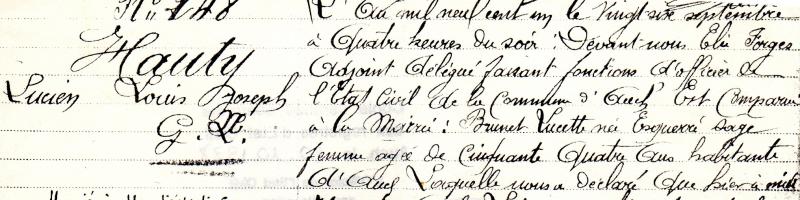 N° 748
Hauty
Lucien Louis Joseph
L'An mil neuf cent un le vingt six septembre
à Quatre heures du soir : Devant nous Elie Forges
Adjoint délégué faisant fonctions d'officier de
l'Etat Civil de la Commune d'Auch Est Comparue
à la Mairie : Brunet Lucette née Esquerré Sage
femme agée de Cinquante Quatre ans habitante
d'Auch Laquelle nous a déclaré Que hier à midi